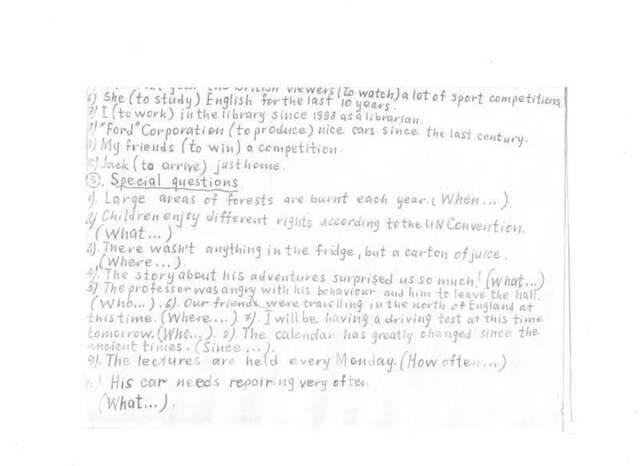 British viewers (to watch) a lot of sport competitions.
6) She (to study) English for the last 10 years.
7) I (to work) in the library since 1998 as a librarian.
8) "Ford" Corporation (to produce) nice cars since the last century.
9) My friends (to win) a competition.
10) Jack (to arrive) just home.
3. Special questions
1). Large areas of forests are burnt each year. (When ... ).
2) Children enjoy different rights according to the UN Convention.
(What ... )
3). There wasn't anything in the fridge, but a carton of juice.
(Where ... )
4). The story about his adventures surprised us so much! (What...)
5) The professor was angry with his behaviour and him to leave the hall.
(Who... ). 6). Our friends were travelling in the north of England at
this time. (Where .... ) 7). I will be having a driving test at this time
tomorrow. (Who... ). 8). The calendar has greatly changed since the
ancient times. (Since ... ).
9). The lectures are held every Monday. (How often ... )
10) His car needs repairing very often.
(What... ).